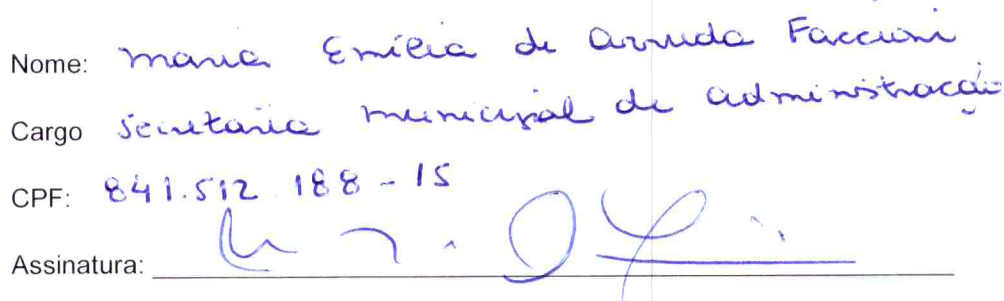 Nome: Maria Emília de Arruda Faccioni
Cargo Secretária municipal de administração
CPF: 841.512.188-15
Assinatura: